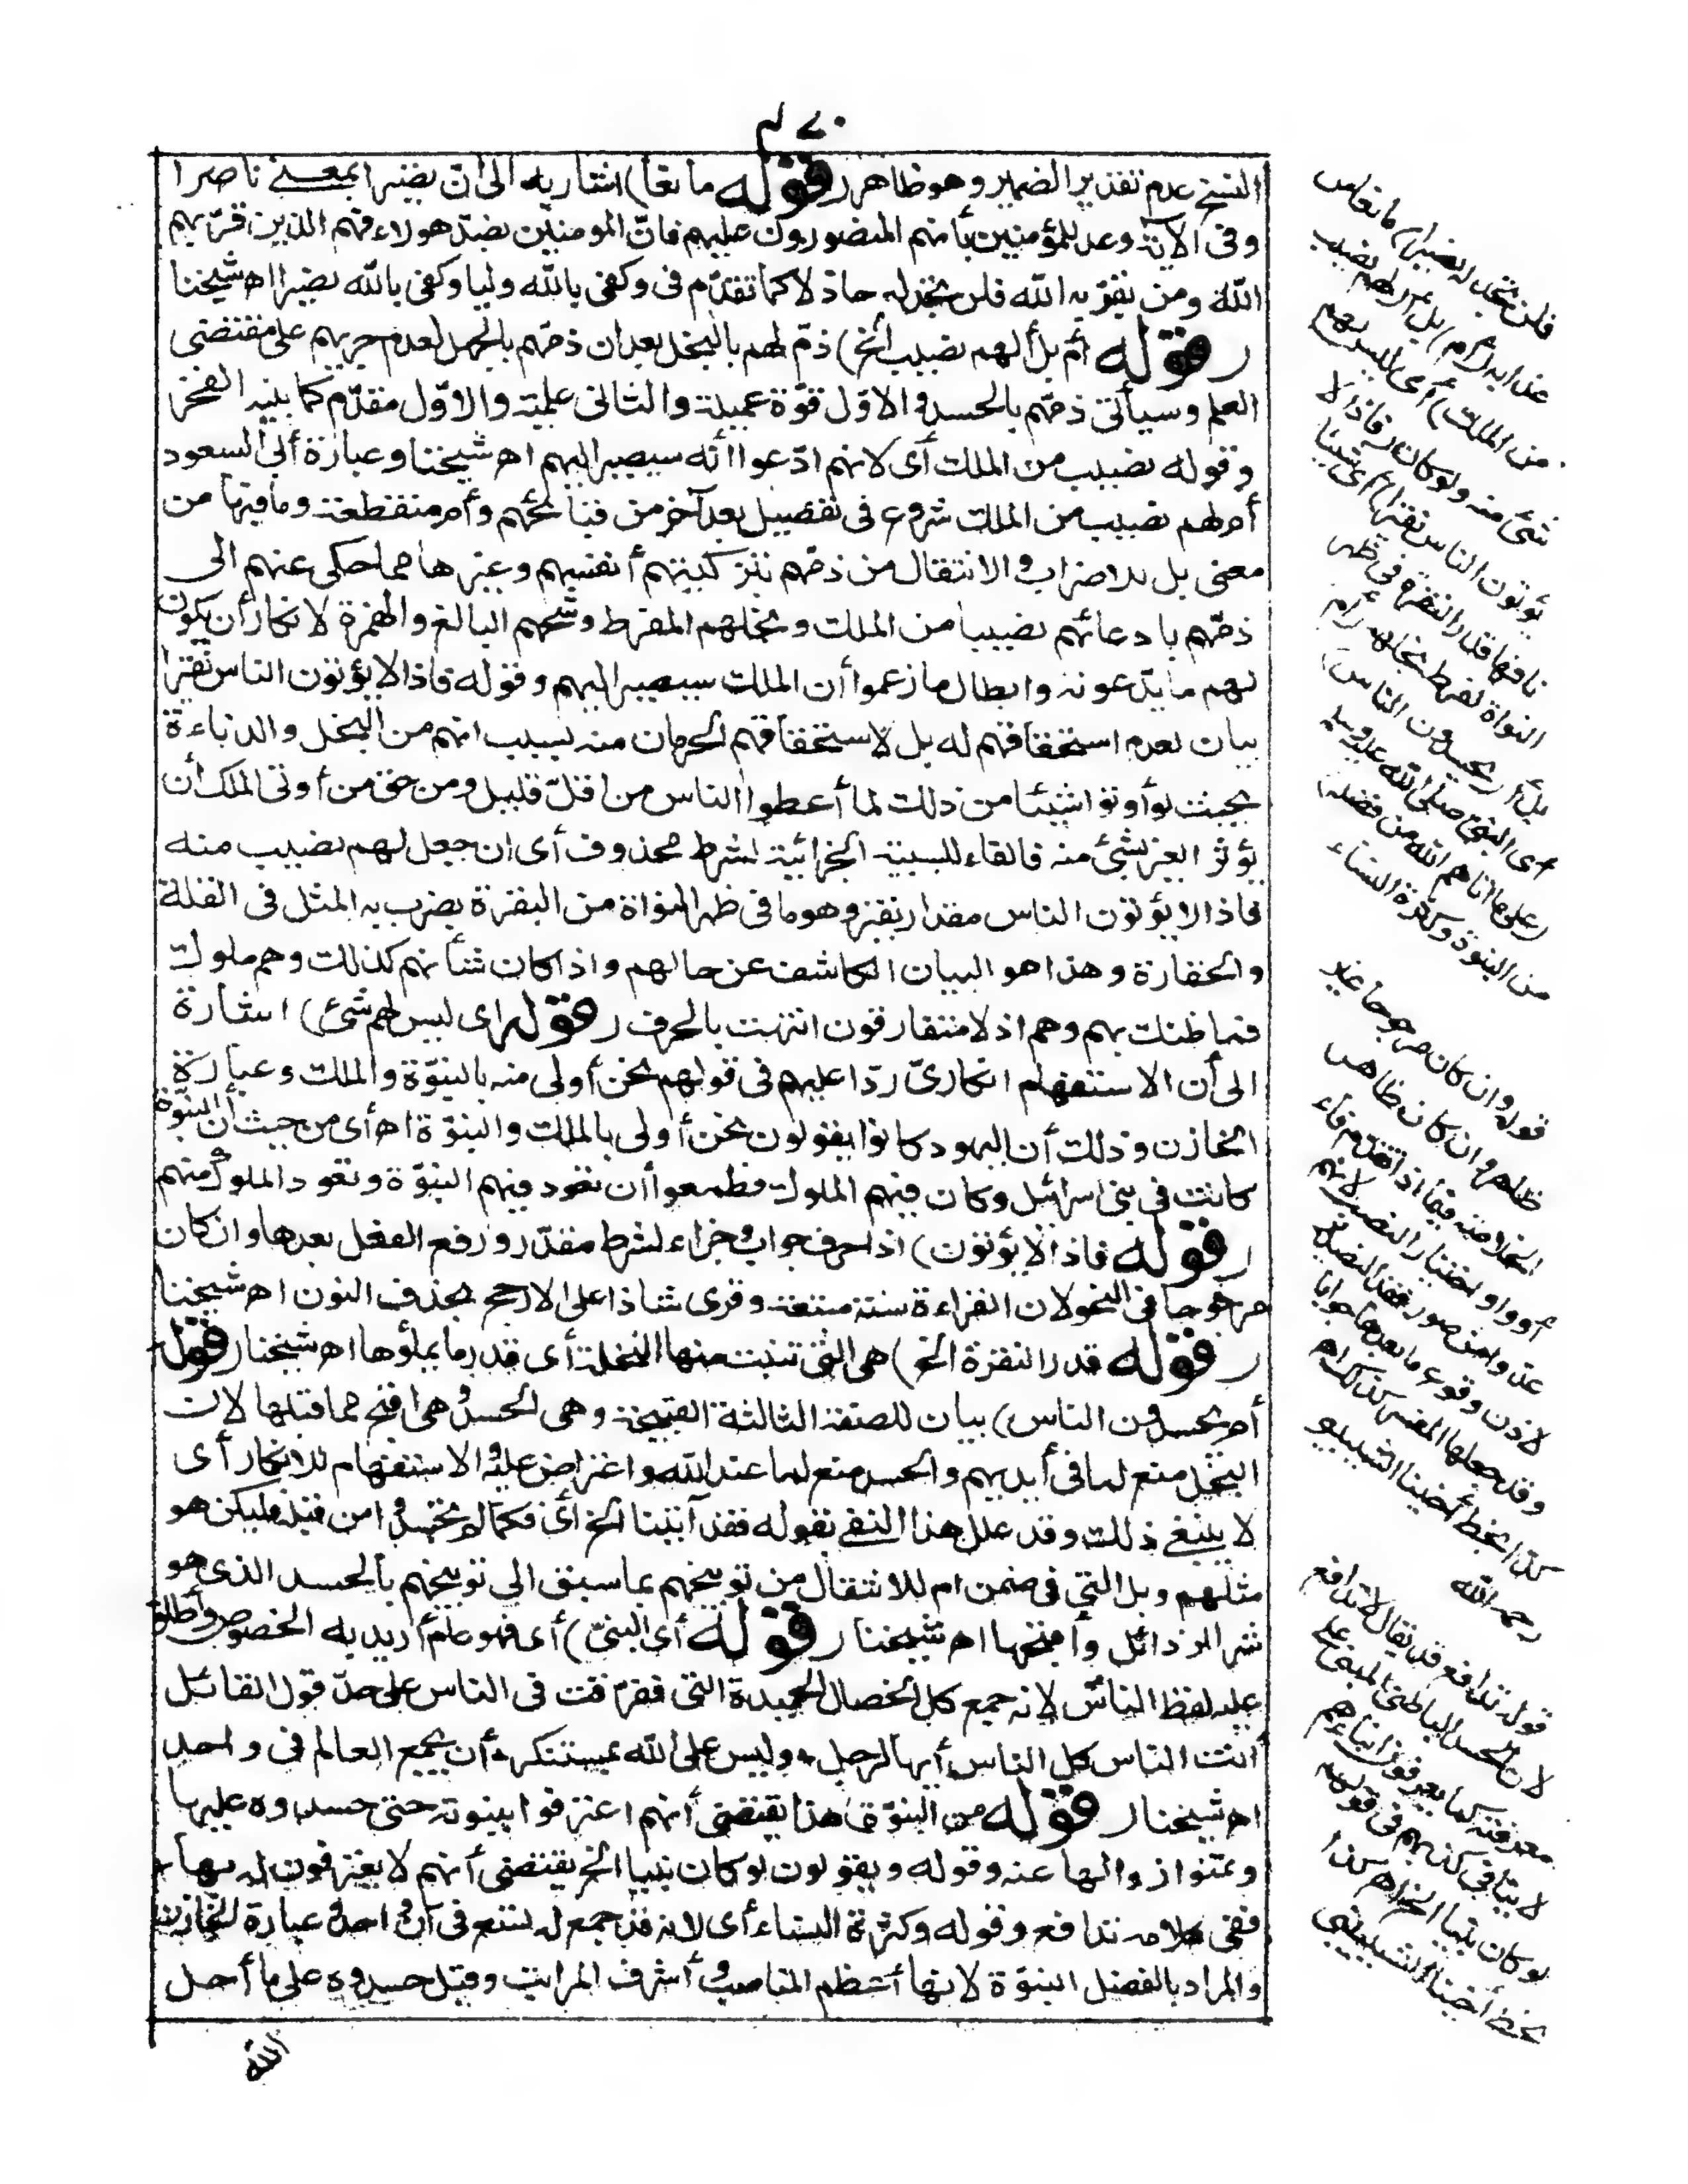 ٤٧٠
النسخ عدم تقدير الضمير وهو ظاهر (قوله مانعا) اشار به الى ان نصيرا بمعنى ناصرا
وفى الآية وعد للمؤمنين بأنهم المنصورون عليهم فانّ المومنين بضدّ هولاء فهم الذين قرّبهم
اللّه ومن يقرّبه اللّه فلن تجد له خاذلا كما تقدّم فى وكفى باللّه وليا وكفى باللّه نصيرا اه شيخنا
(قوله أم بل ألهم نصيب الخ) ذمّ لهم بالبخل بعد ان ذمّهم بالجهل لعدم جريهم على مقتضى
العلم وسيأتى ذمّهم بالحسد والاوّل قوّة عملية والثانى علمية والاوّل مقدّم كما بينه الفخر
وقوله نصيب من الملك أى لانهم ادّعوا أنه سيصير اليهم اه شيخنا وعبارة أبى السعود
أم لهم نصيب من الملك شروع فى تفصيل بعد آخر من قبائحهم وأم منقطعة وما فيها من
معنى بل للاضراب والانتقال من ذمّهم بتزكيتهم أنفسهم وغيرها مما حكى عنهم الى
ذمّهم بادعائهم نصيبا من الملك وبخلهم المفرط وشحهم البالغ والهمزة لانكار أن يكون
لهم ما يدّعونه وابطال ما زعموا أن الملك سيصير اليهم وقوله فاذا لا يؤتون الناس نقيرا
بيان لعدم استحقاقهم له بل لاستحقاقهم الحرمان منه بسبب انهم من البخل والدناءة
بحيث لو أوتوا شيئا من ذلك لما أعطوا الناس من اقلّ قليل ومن حق من أوتى الملك أن
يؤثر الغير بشئ منه فالفاء للسببية الجزائية لشرط محذوف أى ان جعل لهم نصيب منه
فاذا لا يؤتون الناس مقدار نقير وهو ما فى ظهر النواة من النقرة يضرب به المثل فى القلة
والحقارة وهذا هو البيان الكاشف عن حالهم واذا كان شأنهم كذلك وهم ملوك
فما ظنك بهم وهم اذلا متفارقون انتهت بالحرف (قوله اى ليس لهم شئ) اشارة
الى أن الاستفهام انكارىّ ردّا عليهم فى قولهم نحن أولى منه بالنبوّة والملك وعبارة
الخازن وذلك أن اليهود كانوا يقولون نحن أولى بالملك والنبوّة اه أى من حيث أن النبوّة
كانت فى بنى اسرائل وكان فيهم الملوك فطمعوا أن تعود فيهم النبوّة وتعود الملوك منهم
(قوله فاذا لا يؤتون) اذا حرف جواب وجزاء لشرط مقدّر ورفع الفعل بعدها وان كان
مرجوحا فى النحو لان القراءة سنة متبعة وقرى شاذا على الارجح بحذف النون اه شيخنا
(قوله قدر النقرة الخ) هى التى تنبت منها النخلة أى قدر ما يملؤها اه شيخنا (قوله
أم يحسدون الناس) بيان للصفة الثالثة القبيحة وهى الحسد وهى اقبح مما قبلها لان
البخل منع لما فى أيديهم والحسد منع لما عند اللّه واعتراض عليه والاستفهام للانكار أى
لا ينبغى ذلك وقد علل هذا النفى بقوله فقد آتينا الخ أى فكما لم تحسدوا من قبله فليكن هو
مثلهم وبل التى فى ضمن ام للانتقال من توبيخهم بما سبق الى توبيخهم بالحسد الذى هو
شر الرذائل وأقبحها اه شيخنا (قوله أى النبىّ) أى فهو عام أريد به الخصوص وأطلق
عليه لفظ الناس لانه جمع كل الخصال الحميدة التى تفرّقت فى الناس على حدّ قول القائل
أنت الناس كل الناس أيها الرجل وليس على اللّه بمستنكر أن يجمع العالم فى واحد
اه شيخنا (قوله من النبوّة) هذا يقتضى أنهم اعترفوا بنبوته حتى حسدوه عليها
وتمنوا زوالها عنه وقوله ويقولون لو كان نبيا الخ يقتضى أنهم لا يعترفون له بها
ففى كلامه تدافع وقوله وكثرة النساء أى لانه قد جمع له تسع فى آن واحد وعبارة الخازن
والمراد بالفضل النبوّة لانها أعظم المناصب وأشرف المراتب وقيل حسدوه على ما أحل
اللّه
فلن تجد له نصيرا) مانعا من
عذابه (أم) بل أ(لهم نصيب
من الملك) أى ليس لهم
شئ منه ولو كان (فاذا لا
يؤتون الناس نقيرا) أى شيئا
تافها قدر النقرة فى ظهر
النواة لفرط بخلهم (أم)
بل أ(يحسدون الناس)
أى النبىّ صلى اللّه عليه وسلم
(على ما آتاهم اللّه من فضله)
من النبوة وكثرة النساء
قوله وان كان مرجوحا غير
ظاهر وان كان ظاهر
الخلاصة فيما اذا تقدم فاء
أو واو اختيار النصب لانهم
عدوا من صور فقد التصدر
لاذن وقوع ما بعدها جوابا
وقد جعلها المفسر كذلك اه
كذا بخط أخينا الشبينى
رحمه اللّه
قوله تدافع قد يقال لا تدافع
لان الحسد الباطنى المبنى على
معرفته كما يعرفون ابناءهم
لا ينافى كذبهم فى قولهم
لو كان نبيا الخ اه كذا
بخط أخينا الشبينى